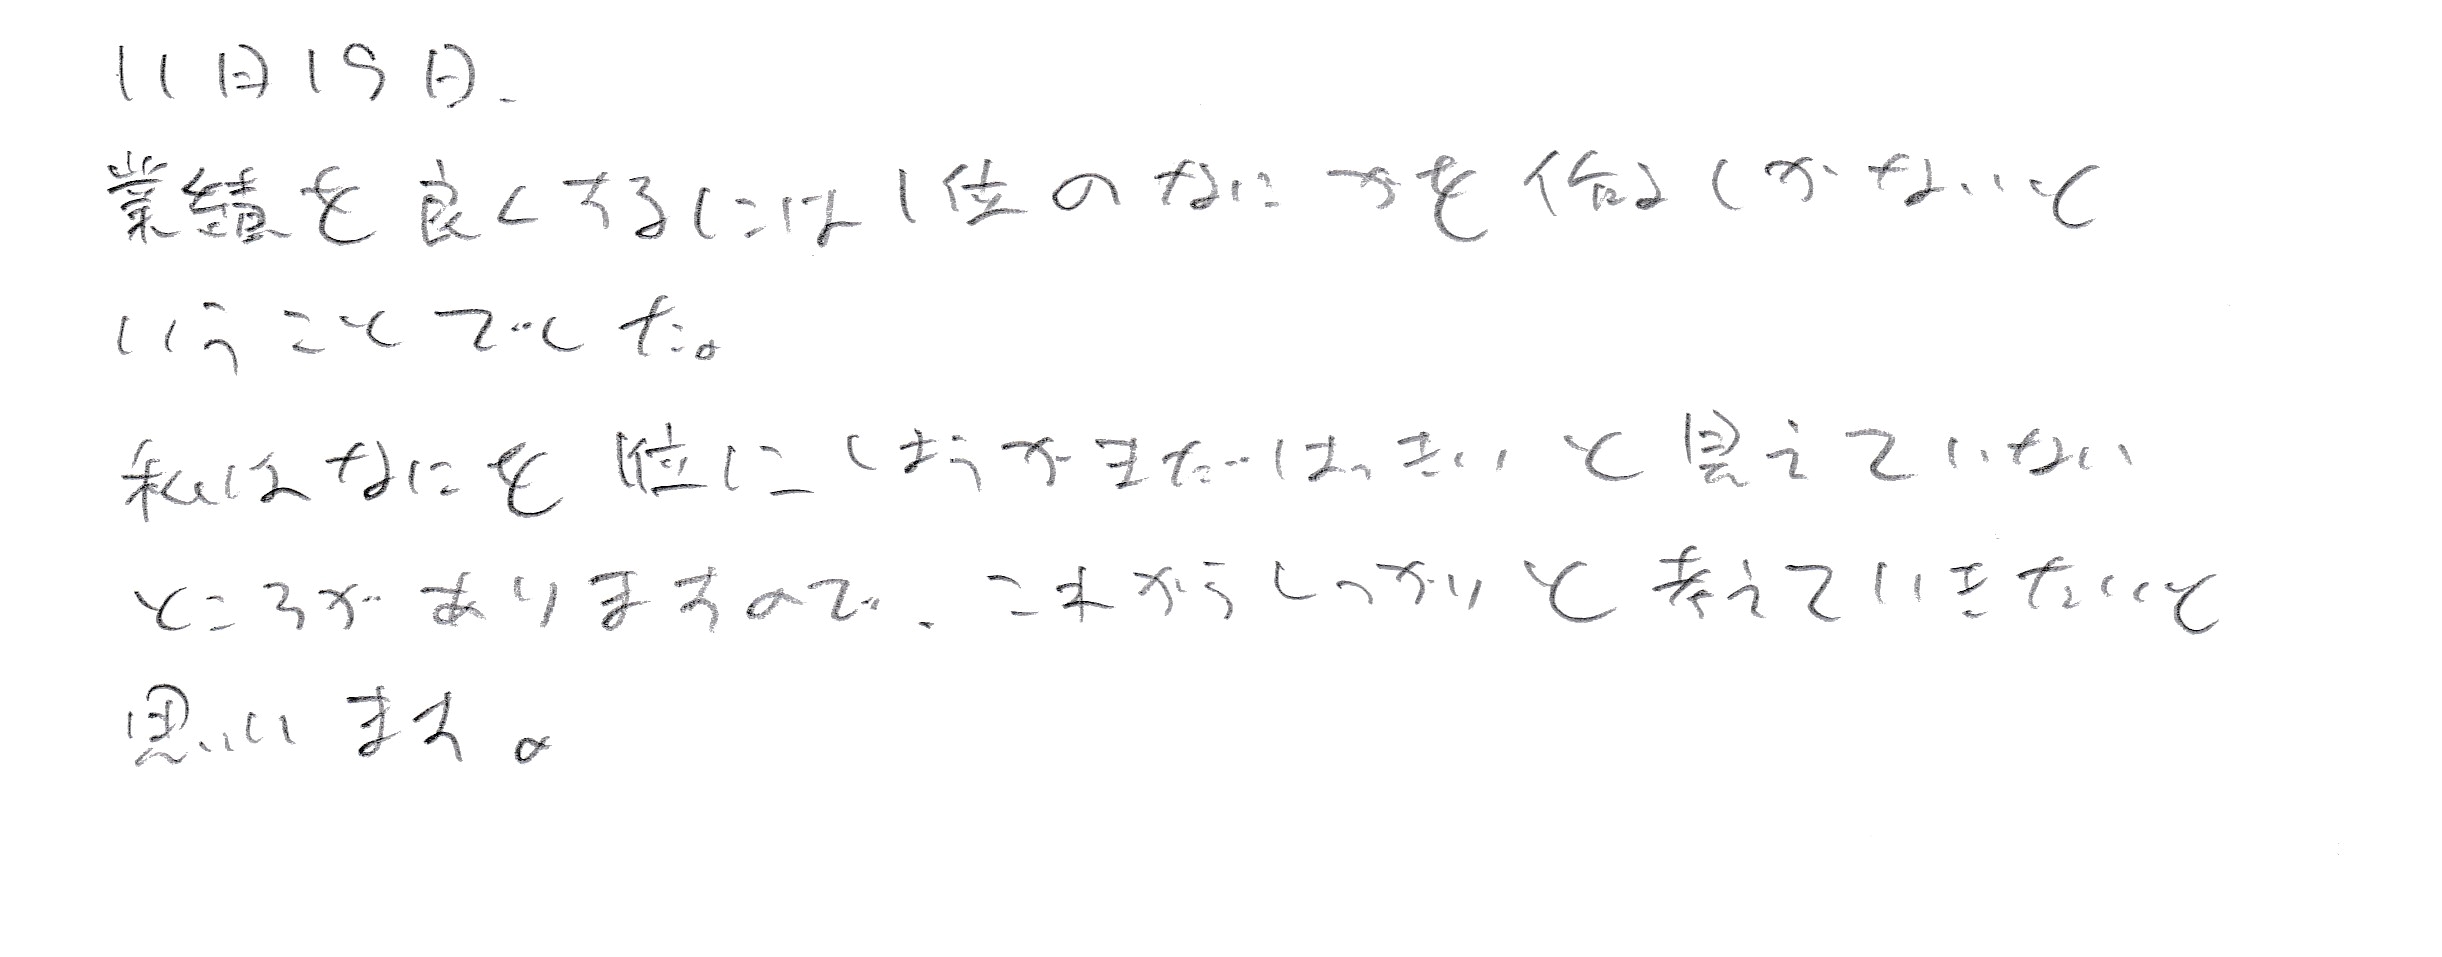 11月19日.
業績を良くするには1位のなにかを作るしかないと
いうことでした。
私はなにを1位にしようかまだはっきりと見えていない
ところがありますので、これからしっかりと考えていきたいと
思います。